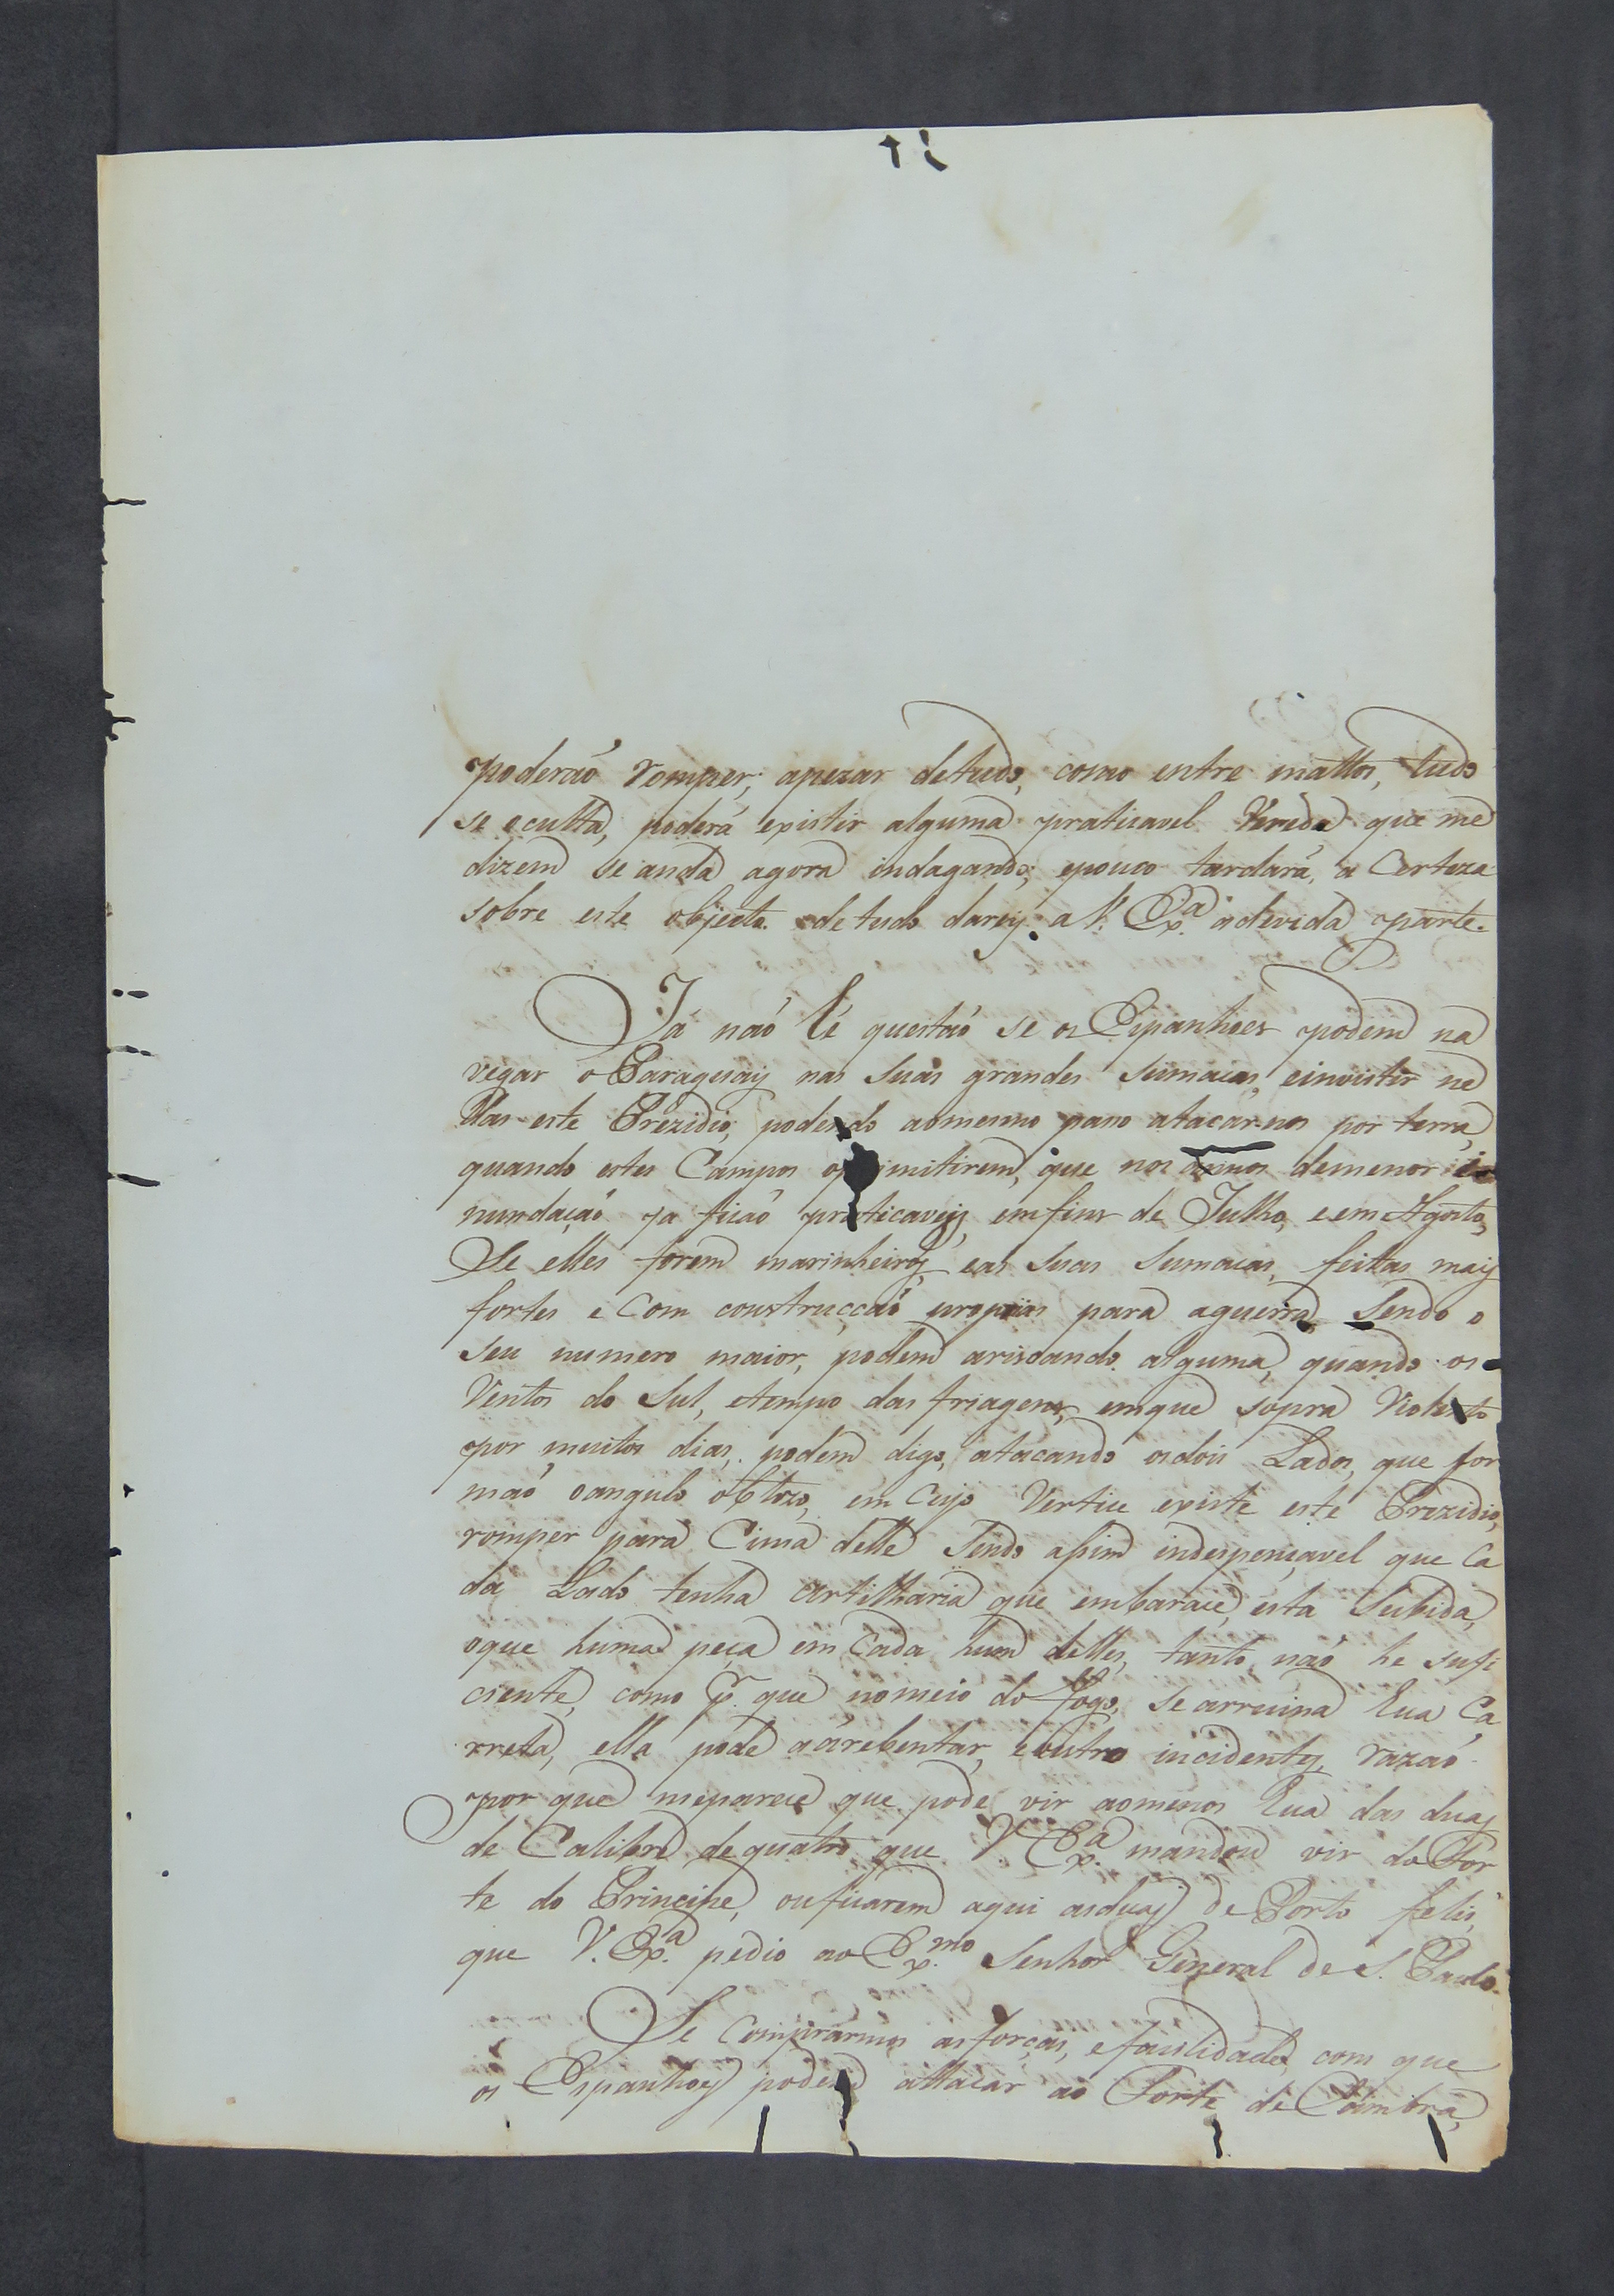 poderáõ romper; apezar detudo, como entre mattos, tudo
se ecculta, poderá existir alguma praticavel Vereda que me
dizem se anda agora indagando; epouco tardará, a Certeza
sobre este objecto. detudo darey a V. Exª. adevida parte.
Já naõ hé questaõ se os Espanhoes podem na
vegar o Paraguay nas suas grandes sumacas, einvistir ne
llas este Prezidio, podendo aomesmo paso atacarnos por terra,
quando estes Campos o mitirem, que nos annos demenor i
nundaçaõ ja ficaõ praticaveis, emfins de Julho, e em Agosto,
Se elles forem marinheiros, eas suas sumacas, feitas mais
fortes e Com construcçaõ propias para aguerra, Sendo o
seu numero maior, podem ariscando alguma, quando os
Ventos do Sul, etempo das friagens, emque sopra Violento
por muitos dias, podem digo, atacando osdois Lados, que for
maõ oangulo obtozo, em Cujo Vertice existe este Prezidio,
romper para Cima delle Sendo asim indespençavel que Ca
da Lado tenha artilharia que embarace, esta Subida,
oque huma peça em Cada hum delles, tanto naõ he sufi
ciente, como pʳ. que nomeio do fogo, se arruina hua Ca
rreta, ella póde aarebentar, eoutro incidentes, razaõ
por que meparece que pode vir aomenos hua das duas
de Calibre de quatro que V. Exª. mandou vir do For
te do Principe, ouficarem aqui asduas de Porto felis,
que V. Exª. pedio ao Exᵐᵒ. Senhor General de S. Paulo.
Se Compráramos asforças, efacilidade, com que
os Espanhoes podem attacar ao Forte de Coimbra,